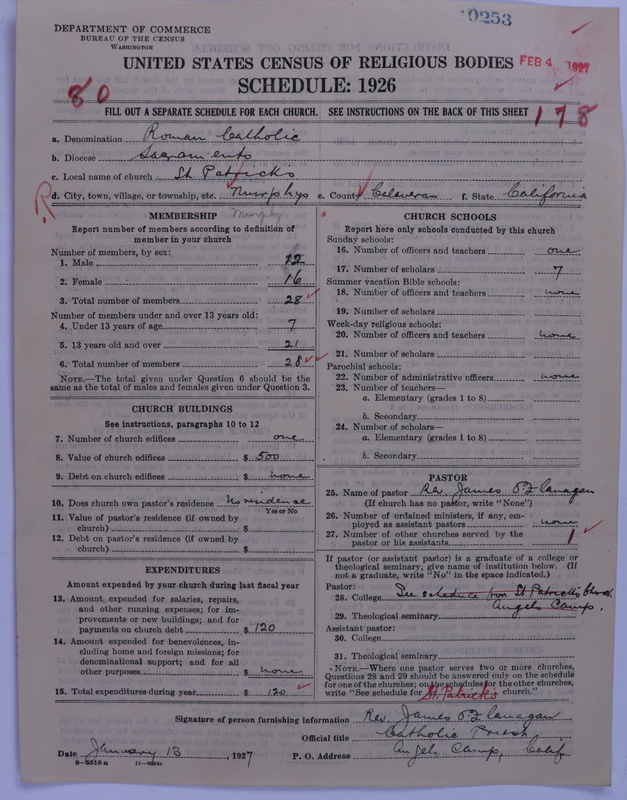 10253
DEPARTMENT OF COMMERCE
BUREAU OF THE CENSUS
WASHINGTON
UNITED STATES CENSUS OF RELIGIOUS BODIES
FEB 4 1927
SCHEDULE: 1926
80
FILL OUT A SEPARATE SCHEDULE FOR EACH CHURCH. SEE INSTRUCTIONS ON THE BACK OF THIS SHEET
178
a. Denomination Roman Catholic
b. Diocese Sacramento
c. Local name of church St Patrick's
R
d. City, town, village, or township, etc. Murphys e. County Calaveras f. State California
Murphy
MEMBERSHIP
Report number of members according to definition of
member in your church
Number of members, by sex:
1. Male 12
2. Female 16
3. Total number of members 28
Number of members under and over 13 years old:
4. Under 13 years of age 7
5. 13 years old and over 21
6. Total number of members 28
NOTE.—The total given under Question 6 should be the
same as the total of males and females given under Question 3.
CHURCH BUILDINGS
See instructions, paragraphs 10 to 12
7. Number of church edifices one
8. Value of church edifices $ 500
9. Debt on church edifices $ none
10. Does church own pastor's residence No residence
Yes or No
11. Value of pastor's residence (if owned by
church) $
12. Debt on pastor's residence (if owned by
church) $
EXPENDITURES
Amount expended by your church during last fiscal year
13. Amount expended for salaries, repairs,
and other running expenses; for im-
provements or new buildings; and for
payments on church debt $ 120
14. Amount expended for benevolences, in-
cluding home and foreign missions; for
denominational support; and for all
other purposes $ none
15. Total expenditures during year $ 120
CHURCH SCHOOLS
Report here only schools conducted by this church
Sunday schools:
16. Number of officers and teachers one
17. Number of scholars 7
Summer vacation Bible schools:
18. Number of officers and teachers none
19. Number of scholars
Week-day religious schools:
20. Number of officers and teachers none
21. Number of scholars
Parochial schools:
22. Number of administrative officers none
23. Number of teachers—
a. Elementary (grades 1 to 8)
b. Secondary
24. Number of scholars—
a. Elementary (grades 1 to 8)
b. Secondary
PASTOR
25. Name of pastor Rev James O'Flanagan
(If church has no pastor, write "None")
26. Number of ordained ministers, if any, em-
ployed as assistant pastors none
27. Number of other churches served by the
pastor or his assistants 1
If pastor (or assistant pastor) is a graduate of a college or
theological seminary, give name of institution below. (If
not a graduate, write "No" in the space indicated.)
Pastor:
28. College See schedule for St Patrick's Church
Angels Camp.
29. Theological seminary
Assistant pastor:
30. College
31. Theological seminary
NOTE.—Where one pastor serves two or more churches,
Questions 28 and 29 should be answered only on the schedule
for one of the churches; on the schedules for the other churches,
write "See schedule for St. Patrick's church."
Signature of person furnishing information Rev. James O'Flanagan
Official title Catholic Priest
Date January 13, 1927 P. O. Address Angels Camp, Calif.
8—5518a 11—9254c